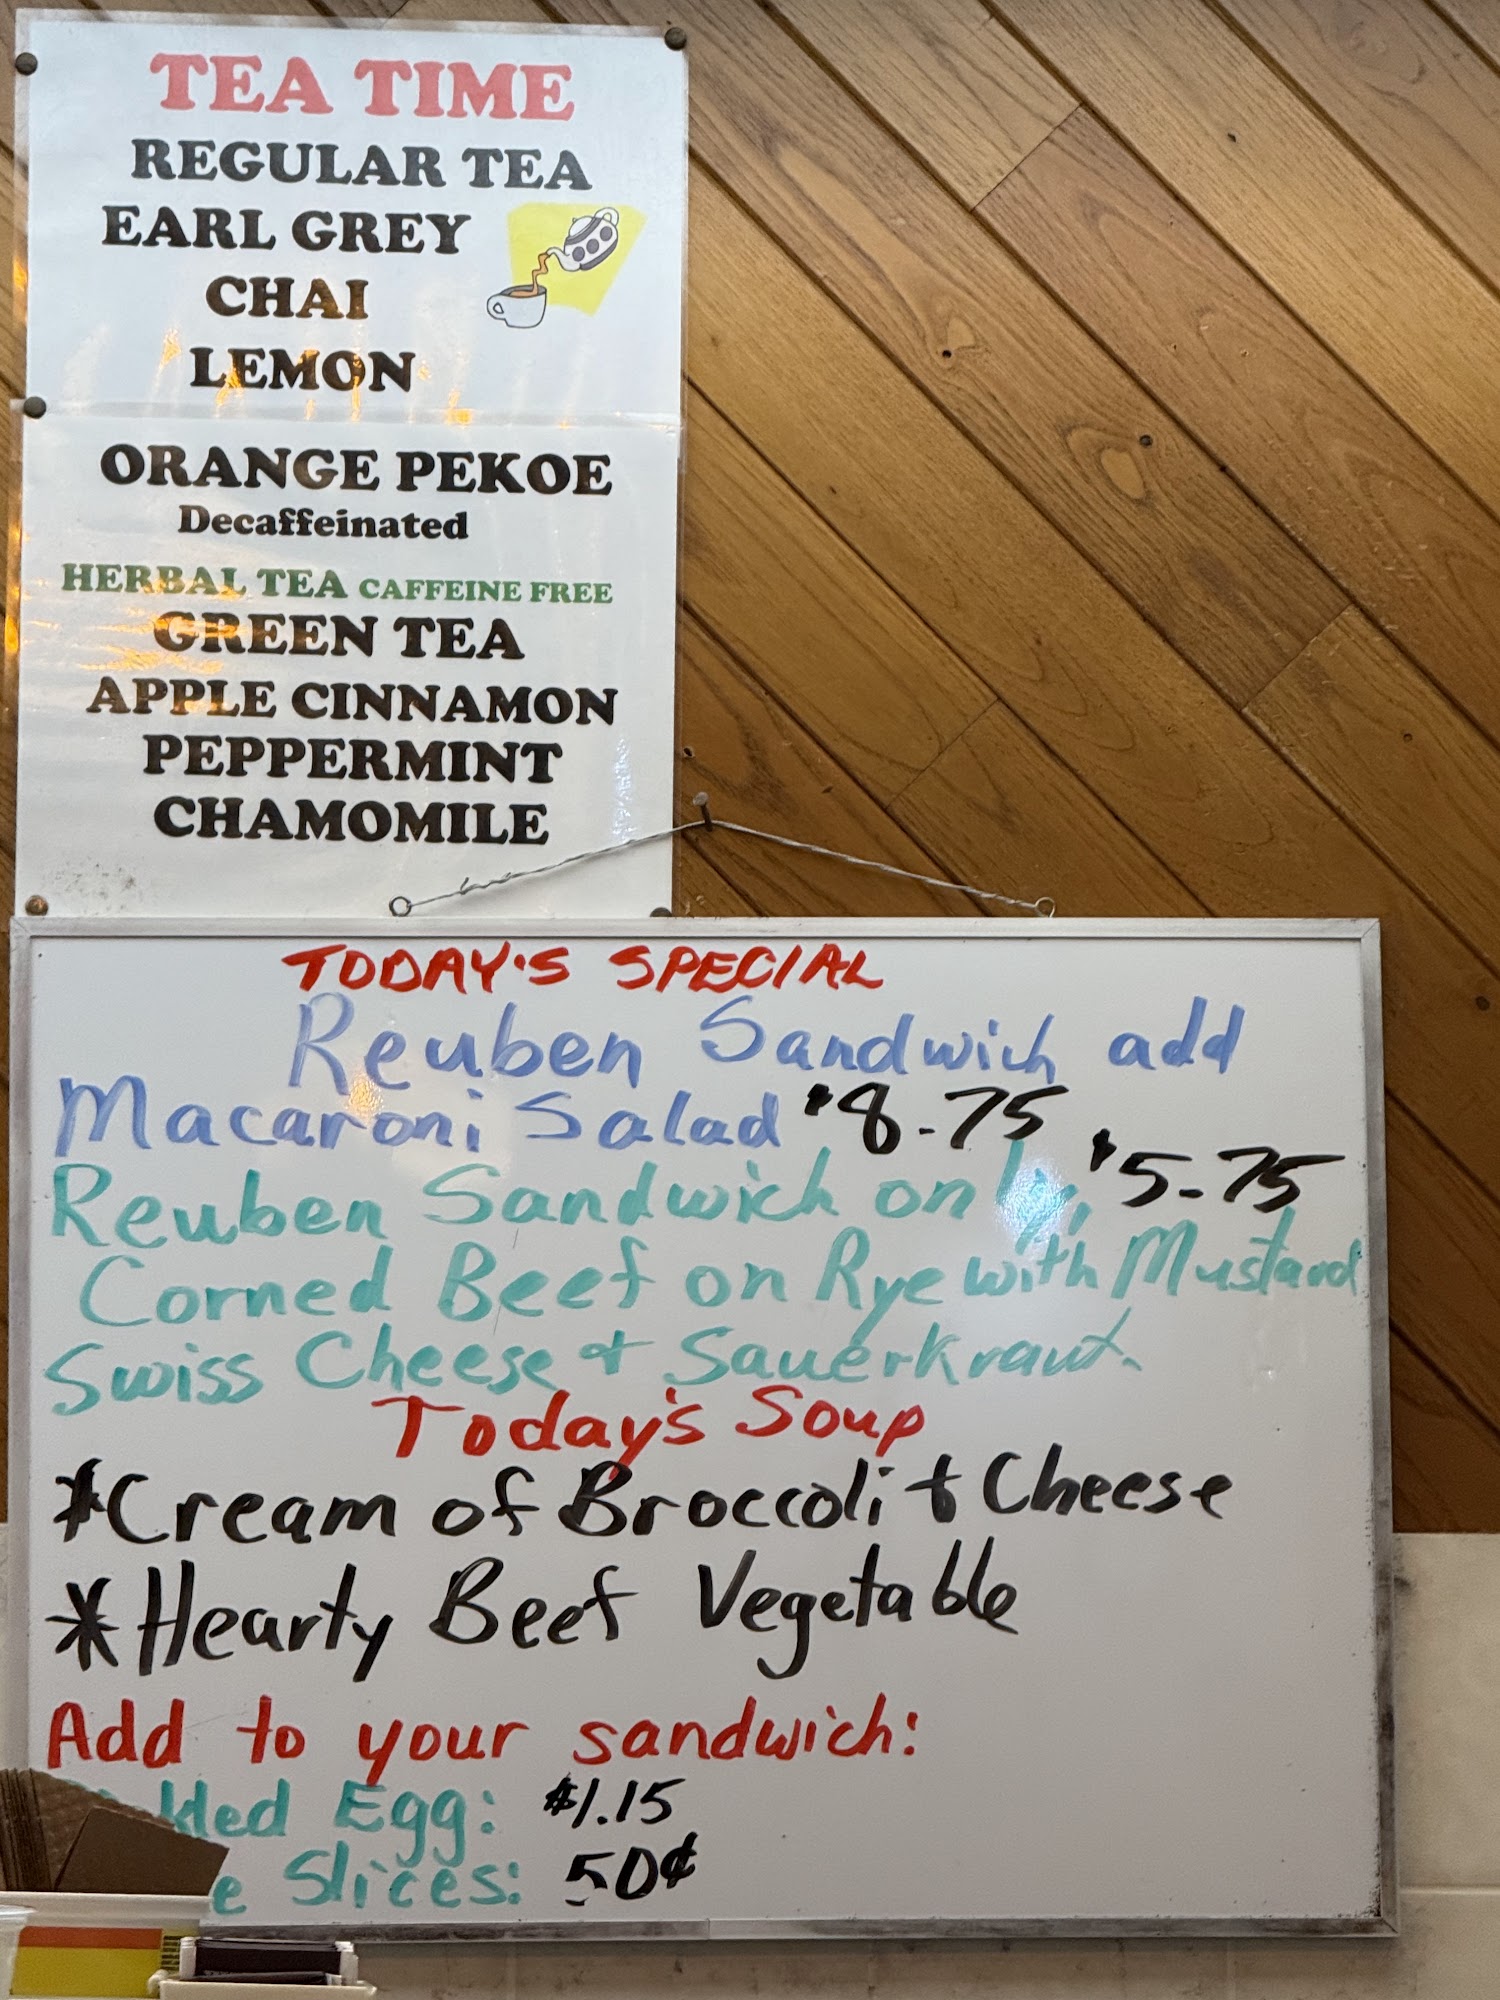 TEA TIME
REGULAR TEA
EARL GREY
CHAI
LEMON
ORANGE PEKOE
Decaffeinated
HERBAL TEA CAFFEINE FREE
GREEN TEA
APPLE CINNAMON
PEPPERMINT
CHAMOMILE
TODAY'S SPECIAL
Reuben Sandwich add
Macaroni Salad $8.75
Reuben Sandwich only, $5.75
Corned Beef on Rye with Mustard
Swiss Cheese & Sauerkraut.
Today's Soup
*Cream of Broccoli & Cheese
*Hearty Beef Vegetable
Add to your sandwich:
Egg: $1.15
Slices: 50¢